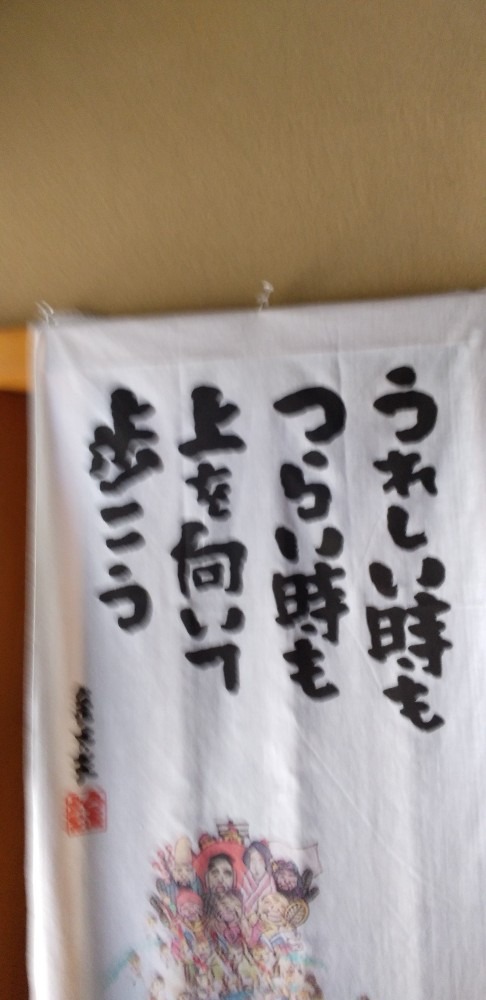 うれしい時も
つらい時も
上を向いて
歩こう